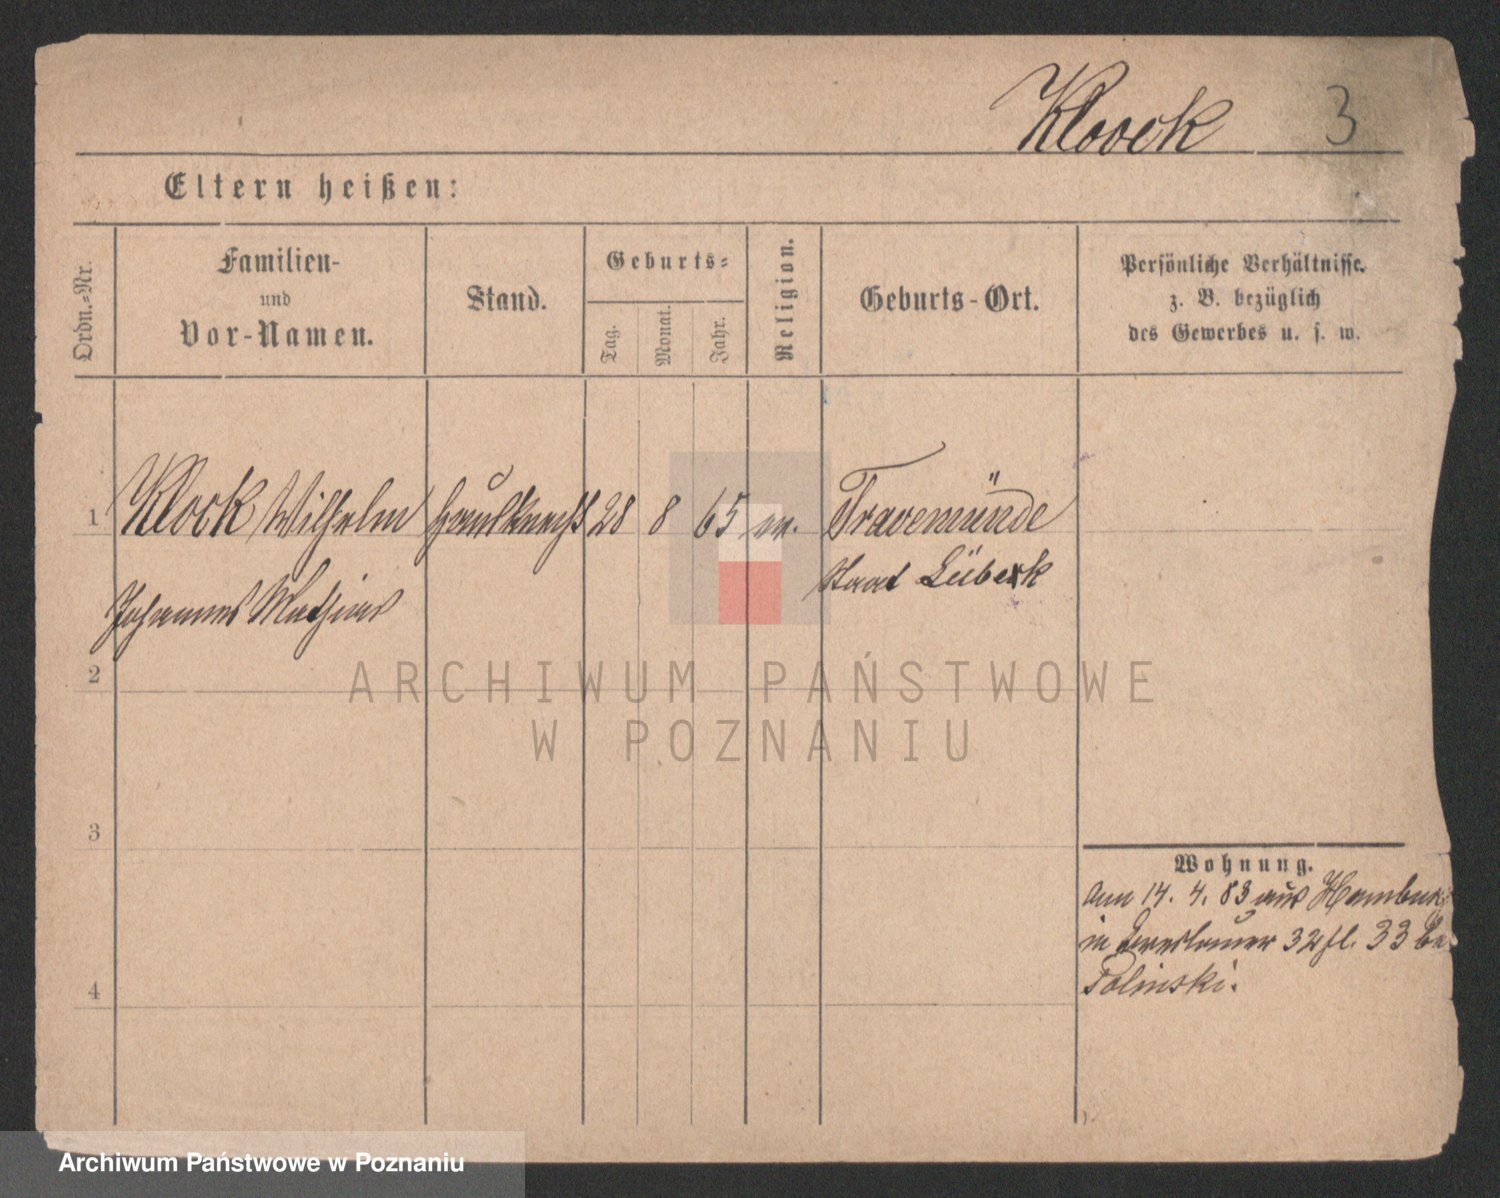 Kloock 3
Eltern heißen:
Ordn.-Nr.
Familien-
und
Vor-Namen.
Stand.
Geburts-
Tag.
Monat.
Jahr.
Religion.
Geburts-Ort.
Persönliche Verhältnisse.
z. B. bezüglich
des Gewerbes u. s. w.
1 Klock Wilhelm Hausknecht 28 8 65 ev. Travemünde
Johannes Mathias Staat Lübeck
2
3
4
Wohnung.
Am 14. 4. 83 aus Hamburg
in Breslauer 33
Polinski.
ARCHIWUM PAŃSTWOWE
W POZNANIU
Archiwum Państwowe w Poznaniu